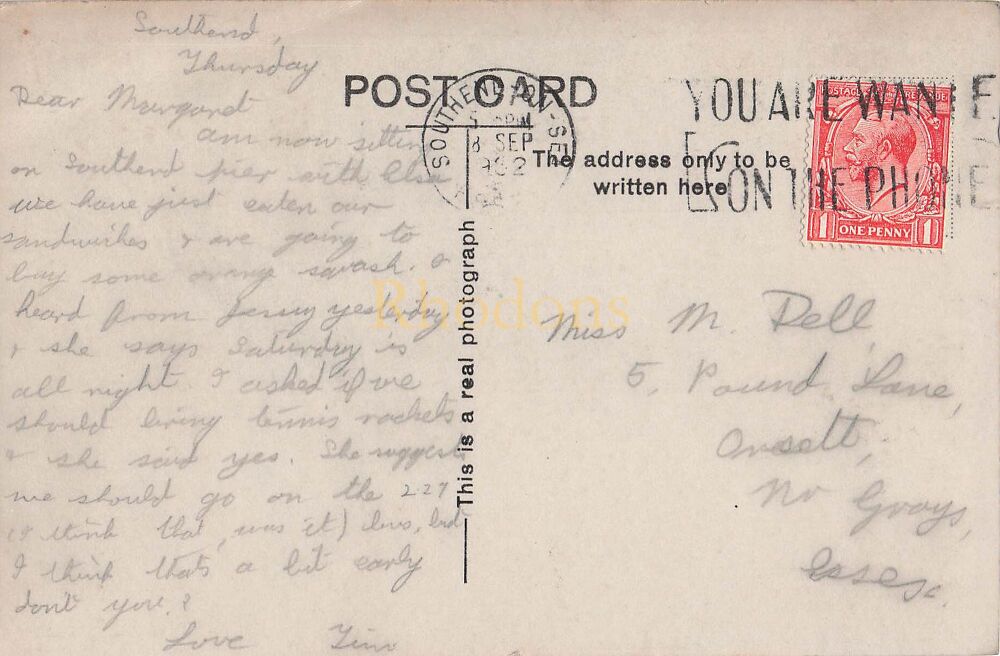 Southend,
Thursday
Dear Margaret
am now sitting
on Southend pier with Elsa
we have just eaten our
sandwiches & are going to
buy some orange squash. I
heard from Jenny yesterday
& she says Saturday is
all right. I asked if we
should bring tennis rackets
& she said yes. She suggests
we should go on the 2.27
(I think that was it) bus, but
I think thats a bit early
don't you?
Love
POST CARD
SOUTHEND-ON-SE
PM
8 SEP
The address only to be
written here
YOU ARE WANTE
ON THE PHONE
POSTAGE REVENUE
1 ONE PENNY 1
This is a real photograph
Rhodons
Miss M. Dell,
5, Pound Lane,
Orsett,
Nr Grays,
Essex.